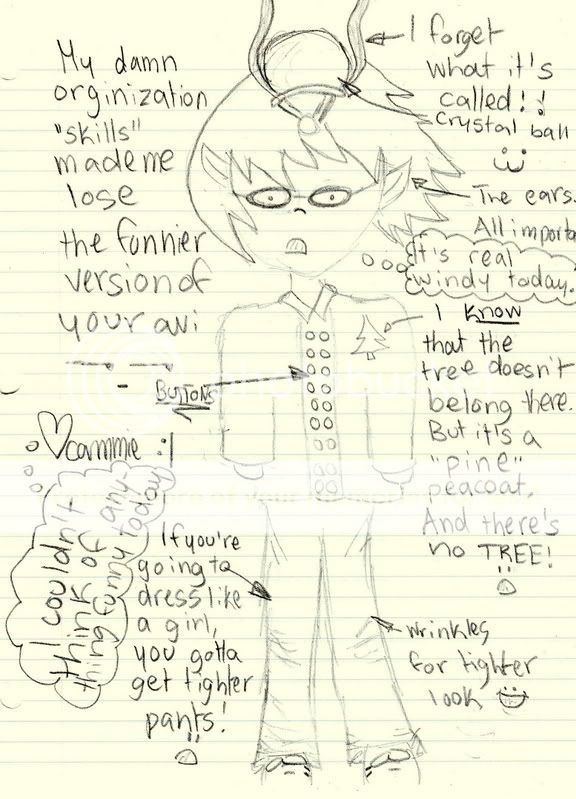 My damn
orginization
"skills"
made me
lose
the funnier
version of
your avi
I forget
what it's
called!
crystal ball
The ears.
All importa
It's real
windy today.
I know
that the
tree doesn't
belong there.
But it's a
"pine"
peacoat,
And there's
no TREE!
BUTTONS
cammie :|
I couldn't
think of any
thing funny today
If you're
going to
dress like
a girl,
you gotta
get tighter
pants!
wrinkles
for tighter
look